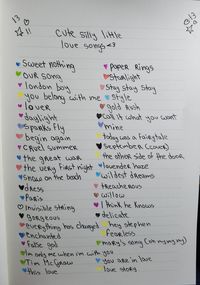 13
13
11
cute silly little
love songs <3
Sweet nothing
our song
london boy
you belong with me
lover
daylight
sparks fly
begin again
cruel summer
the great war
the very first night
snow on the beach
dress
paris
invisible string
gorgeous
everything has changed
Enchanted
false god
I'm only me when i'm with you
Tim McGraw
this love
paper Rings
Starlight
Stay stay stay
style
gold rush
call it what you want
mine
today was a fairytale
September (cover)
the other side of the door
lavender haze
wildest dreams
treacherous
willow
I think he knows
delicate
hey stephen
fearless
mary's song (oh my my my)
you are in love
love story